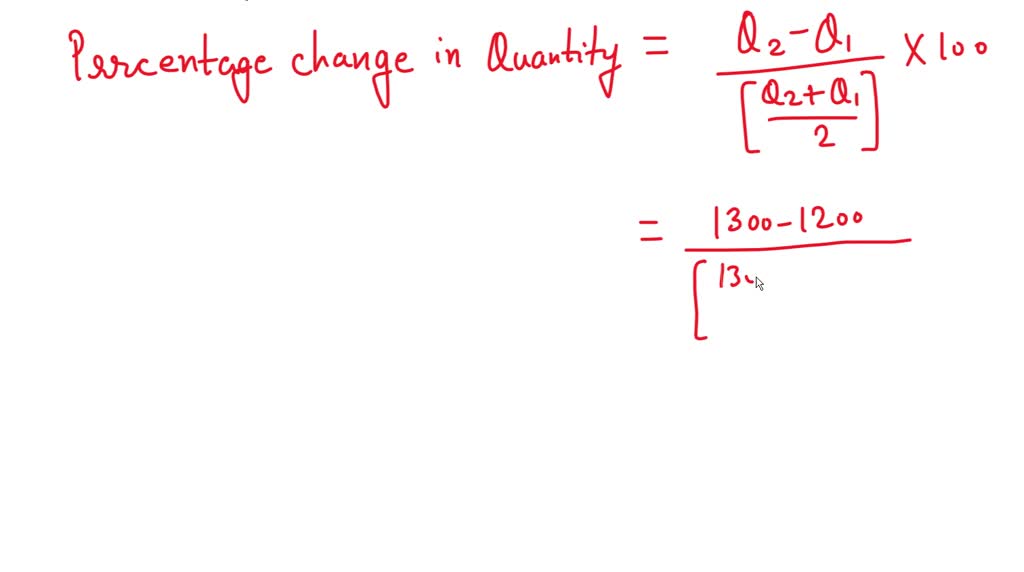 Percentage change in Quantity = Q2 - Q1 / [Q2 + Q1 / 2] X 100
= 1300 - 1200 / [130